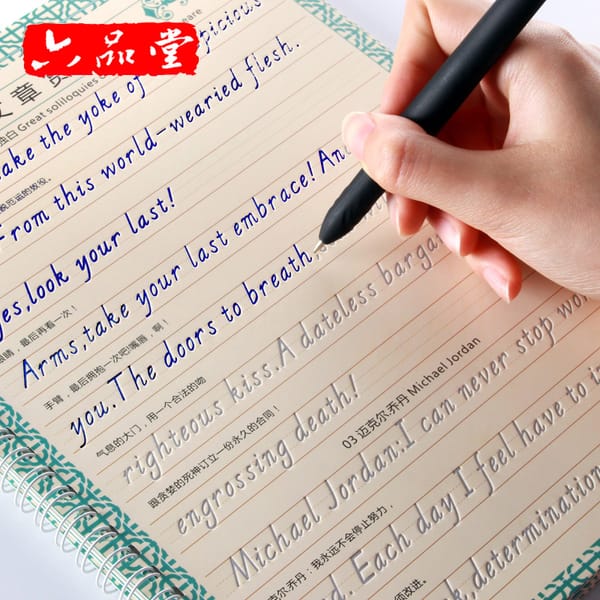 六品堂
文章
独白 Great soliloquies
the yoke of
From this world-wearied flesh.
look your last!
眼睛，最后再看一次！
Arms,take your last embrace!And
手臂，最后拥抱一次吧!嘴唇，啊！
you.The doors to breath
气息的大门，用一个合法的吻
righteous kiss.A dateless bargain
跟贪婪的死神订立一份永久的合同！
engrossing death!
03 迈克尔.乔丹 Michael Jordan
Michael Jordan:I can never stop
尔.乔丹：我永远不会停止努力，
Each day I feel have to
须改进。
determination